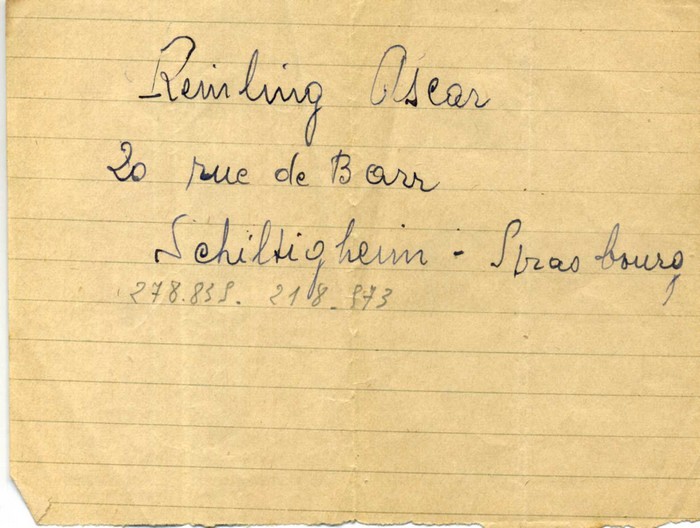 Reinling Oscar
20 rue de Barr
Schiltigheim - Strasbourg
278.839. 218.973